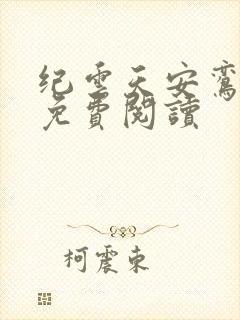 纪云天安鸾
免費閱讀
柯震东